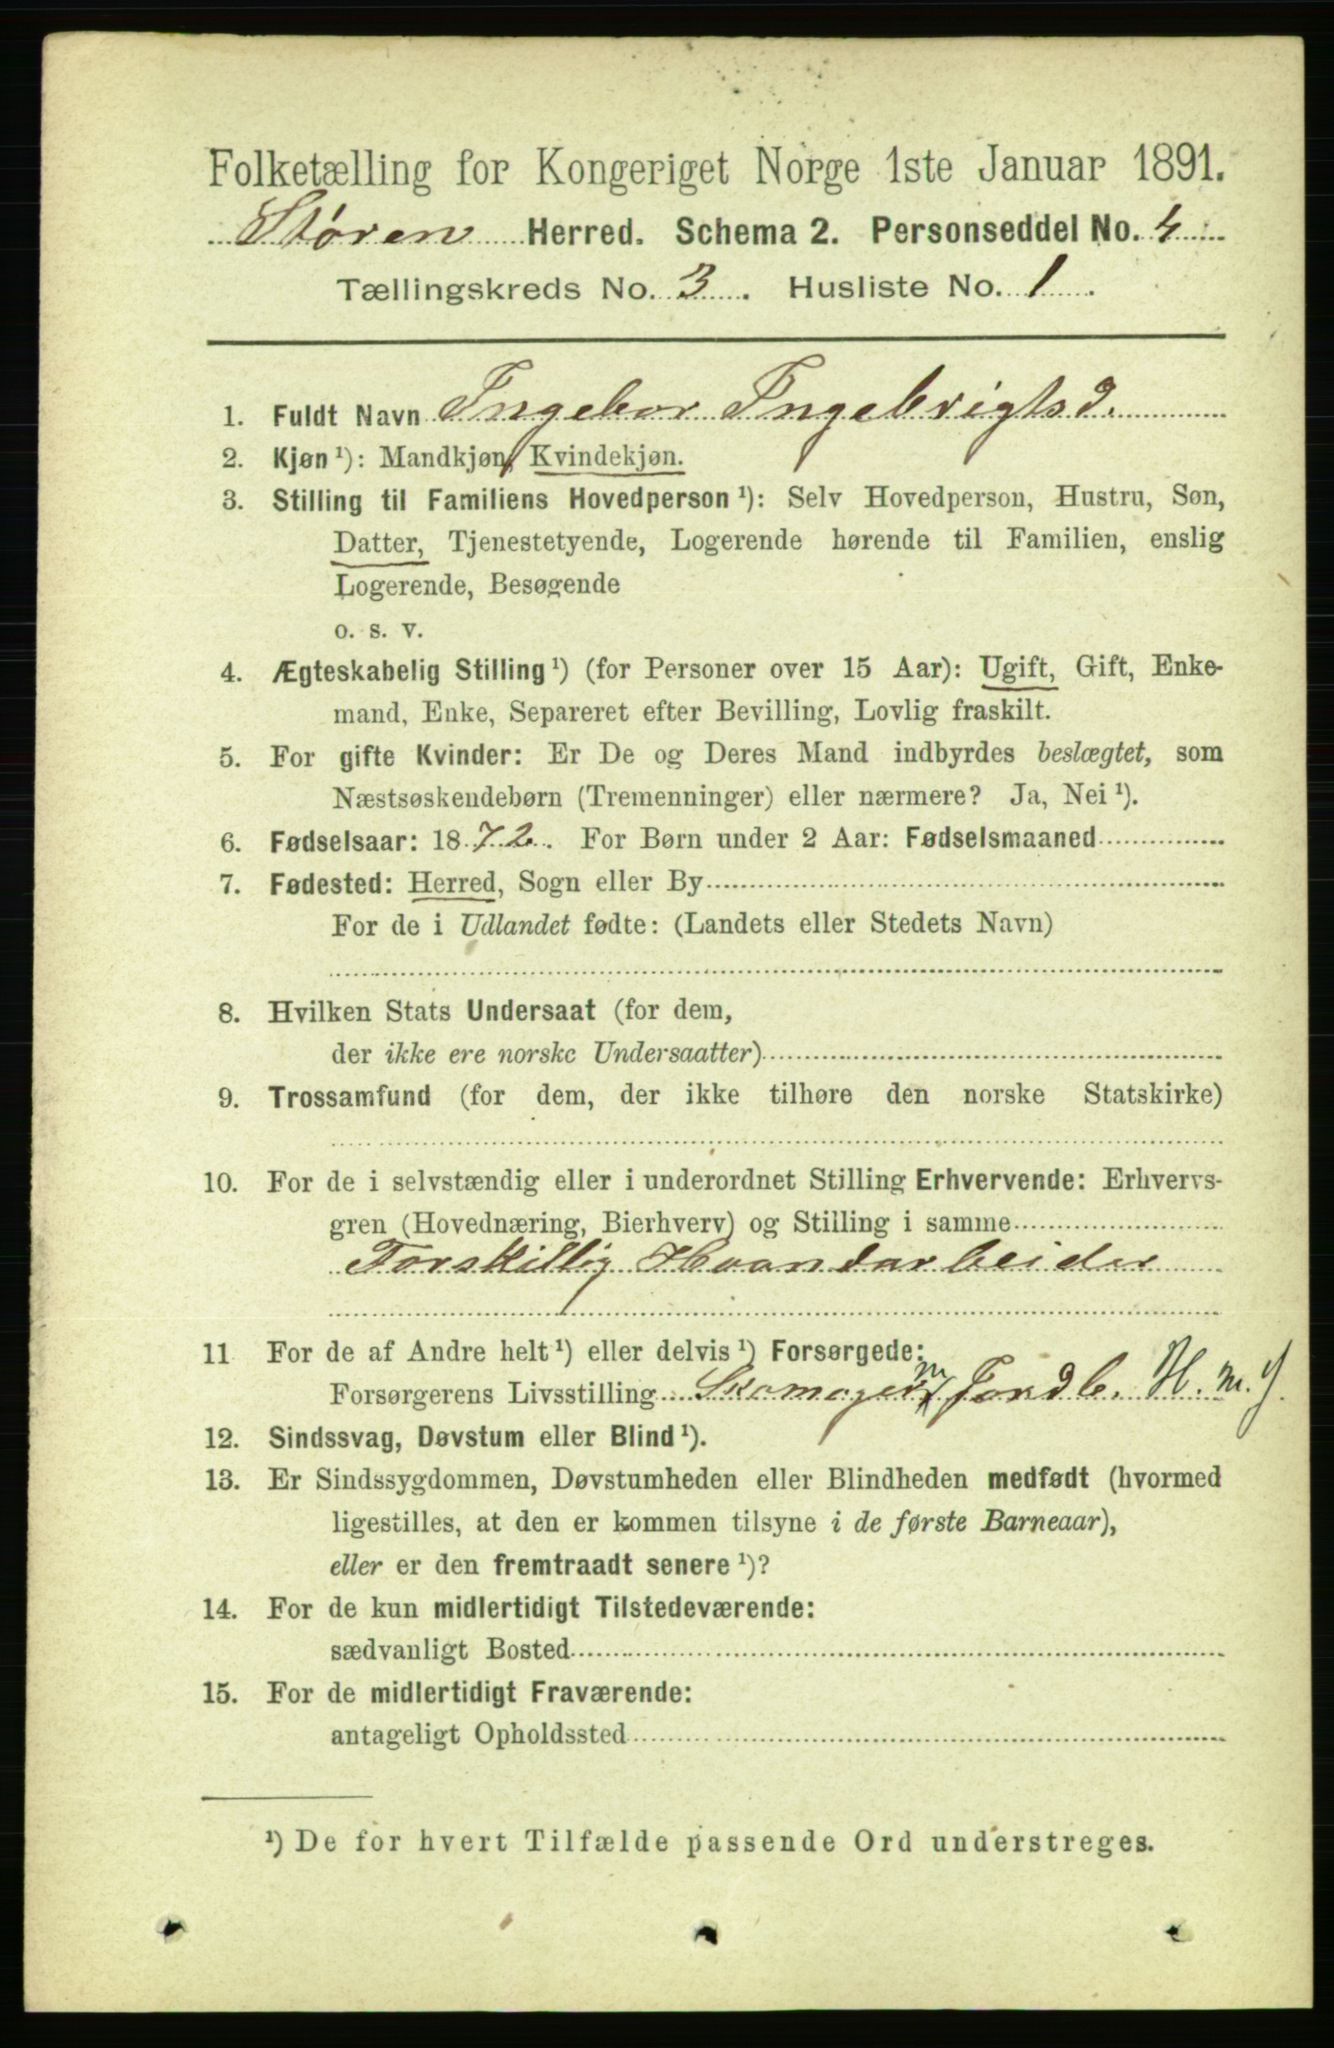 Folketælling for Kongeriget Norge 1ste Januar 1891.
Støren Herred. Schema 2. Personseddel No. 4
Tællingskreds No. 3. Husliste No. 1.
1. Fuldt Navn Ingebor Ingebrigtsd.
2. Kjøn ¹): Mandkjøn, Kvindekjøn.
3. Stilling til Familiens Hovedperson ¹): Selv Hovedperson, Hustru, Søn,
Datter, Tjenestetyende, Logerende hørende til Familien, enslig
Logerende, Besøgende
o. s. v.
4. Ægteskabelig Stilling ¹) (for Personer over 15 Aar): Ugift, Gift, Enke-
mand, Enke, Separeret efter Bevilling, Lovlig fraskilt.
5. For gifte Kvinder: Er De og Deres Mand indbyrdes beslægtet, som
Næstsøskendebørn (Tremenninger) eller nærmere? Ja, Nei ¹).
6. Fødselsaar: 1872. For Børn under 2 Aar: Fødselsmaaned
7. Fødested: Herred, Sogn eller By
For de i Udlandet fødte: (Landets eller Stedets Navn)
8. Hvilken Stats Undersaat (for dem,
der ikke ere norske Undersaatter)
9. Trossamfund (for dem, der ikke tilhøre den norske Statskirke)
10. For de i selvstændig eller i underordnet Stilling Erhvervende: Erhvervs-
gren (Hovednæring, Bierhverv) og Stilling i samme
Forskillig Haandarbeider
11 For de af Andre helt ¹) eller delvis ¹) Forsørgede:
Forsørgerens Livsstilling Skomager Jordb.
12. Sindssvag, Døvstum eller Blind ¹).
13. Er Sindssygdommen, Døvstumheden eller Blindheden medfødt (hvormed
ligestilles, at den er kommen tilsyne i de første Barneaar),
eller er den fremtraadt senere ¹)?
14. For de kun midlertidigt Tilstedeværende:
sædvanligt Bosted
15. For de midlertidigt Fraværende:
antageligt Opholdssted
¹) De for hvert Tilfælde passende Ord understreges.